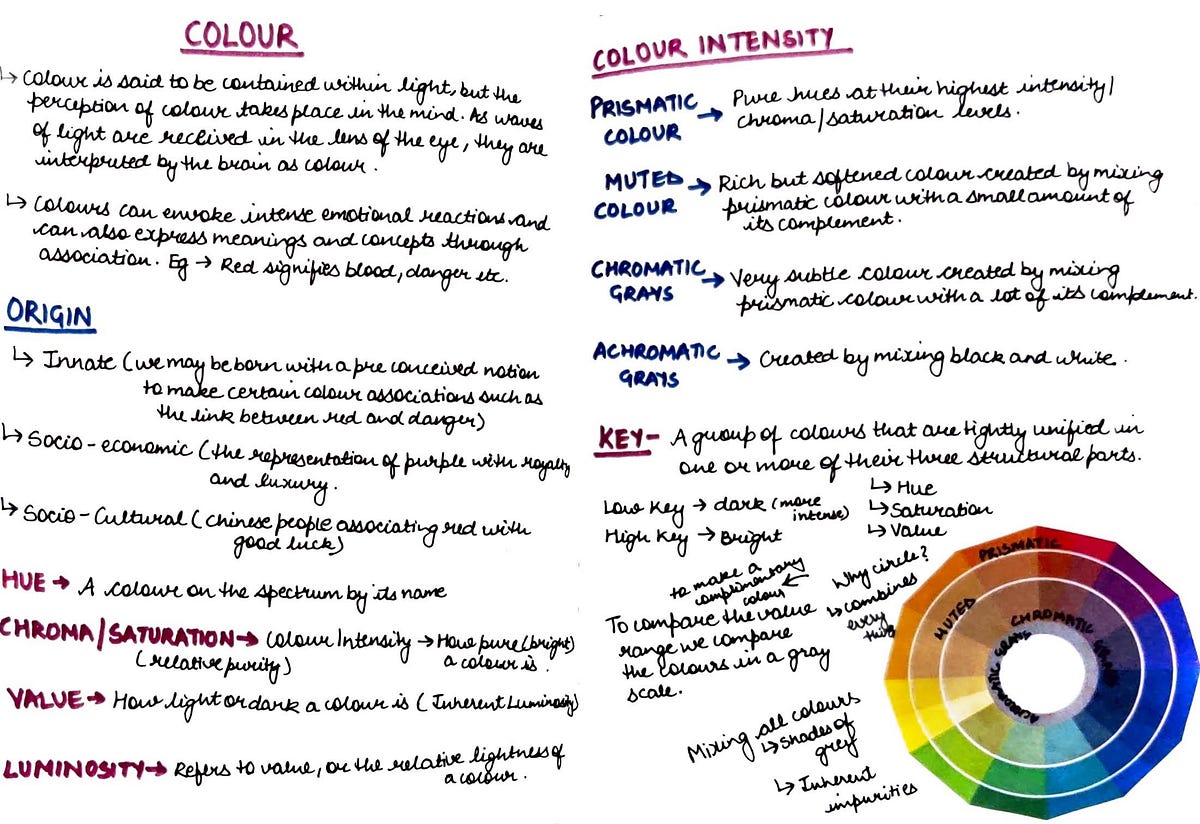 COLOUR
↳ Colour is said to be contained within light, but the
perception of colour takes place in the mind. As waves
of light are recieved in the lens of the eye, they are
interpreted by the brain as colour.
↳ Colours can envoke intense emotional reactions and
can also express meanings and concepts through
association. Eg → Red signifies blood, danger etc.
ORIGIN
↳ Innate (we may be born with a pre conceived notion
to make certain colour associations such as
the link between red and danger)
↳ Socio-economic (the representation of purple with royalty
and luxury.
↳ Socio-Cultural (chinese people associating red with
good luck)
HUE → A colour on the spectrum by its name
CHROMA/SATURATION → Colour Intensity → How pure (bright)
(relative purity) a colour is.
VALUE → How light or dark a colour is (Inherent Luminosity)
LUMINOSITY → Refers to value, or the relative lightness of
a colour.
COLOUR INTENSITY
PRISMATIC COLOUR → Pure hues at their highest intensity/
chroma/saturation levels.
MUTED COLOUR → Rich but softened colour created by mixing
prismatic colour with a small amount of
its complement.
CHROMATIC GRAYS → Very subtle colour created by mixing
prismatic colour with a lot of its complement.
ACHROMATIC GRAYS → Created by mixing black and white.
KEY - A group of colours that are tightly unified in
one or more of their three structural parts.
↳ Hue
↳ Saturation
↳ Value
Low Key → dark (more intense)
High Key → Bright
to make a
complimentary
colour
To compare the value
range we compare
the colours in a gray
scale.
Why circle?
↳ combines
every
thing
Mixing all colours
↳ Shades of
grey
↳ Inherent
impurities
PRISMATIC
MUTED
CHROMATIC GRAYS
ACHROMATIC GRAYS